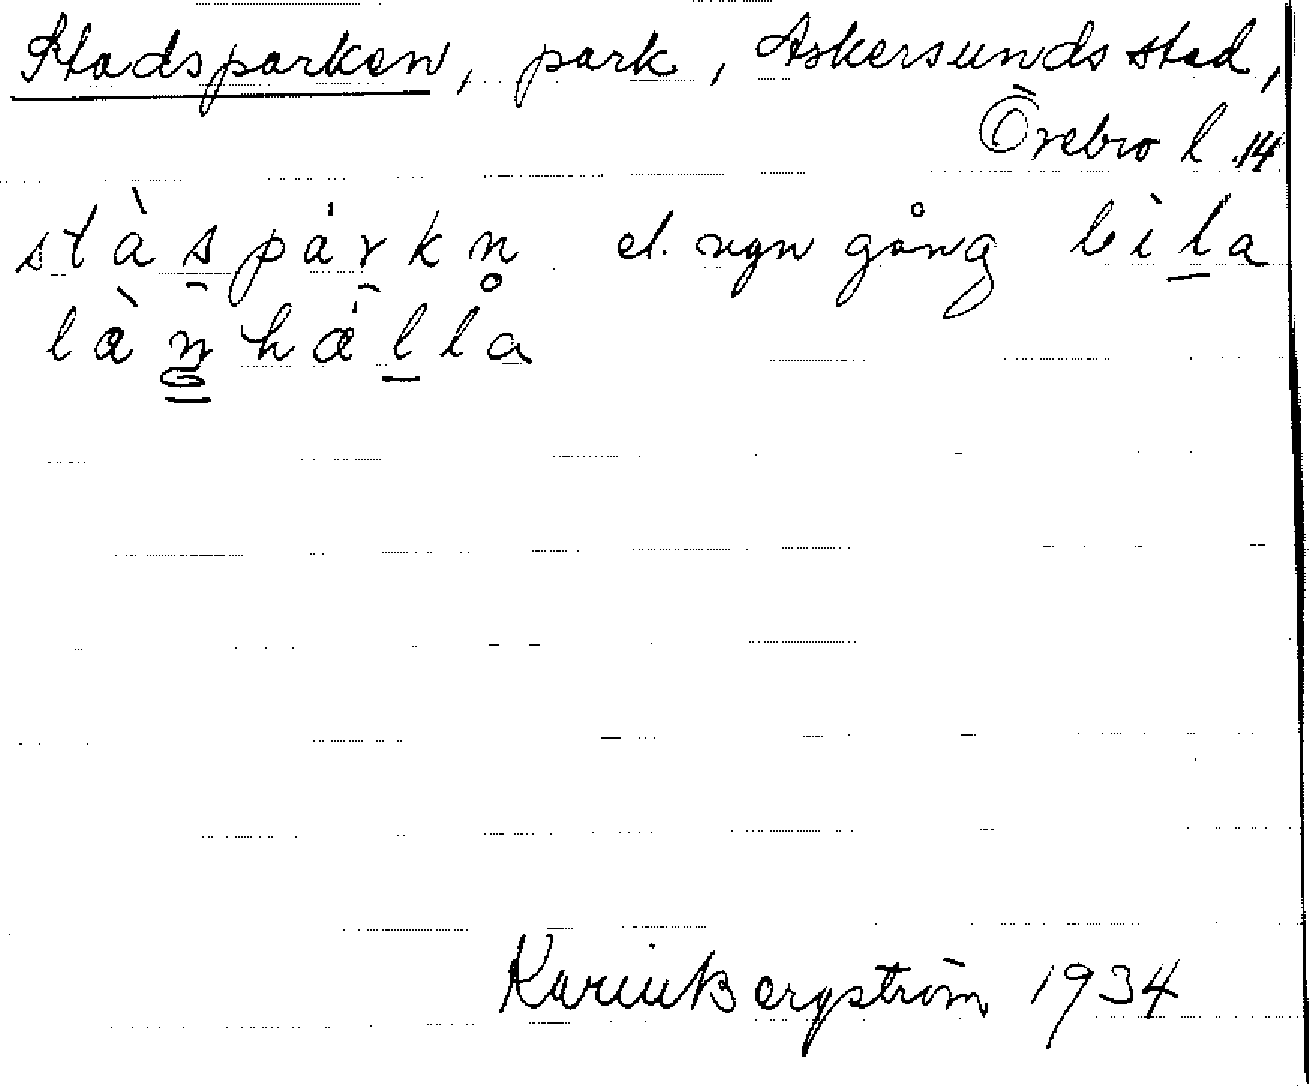 Stadsparken, park, Askersunds stad,
Örebro l. 14
stàspárkn el. ngn gång lìla
là n hál la
Karin Bergström 1934